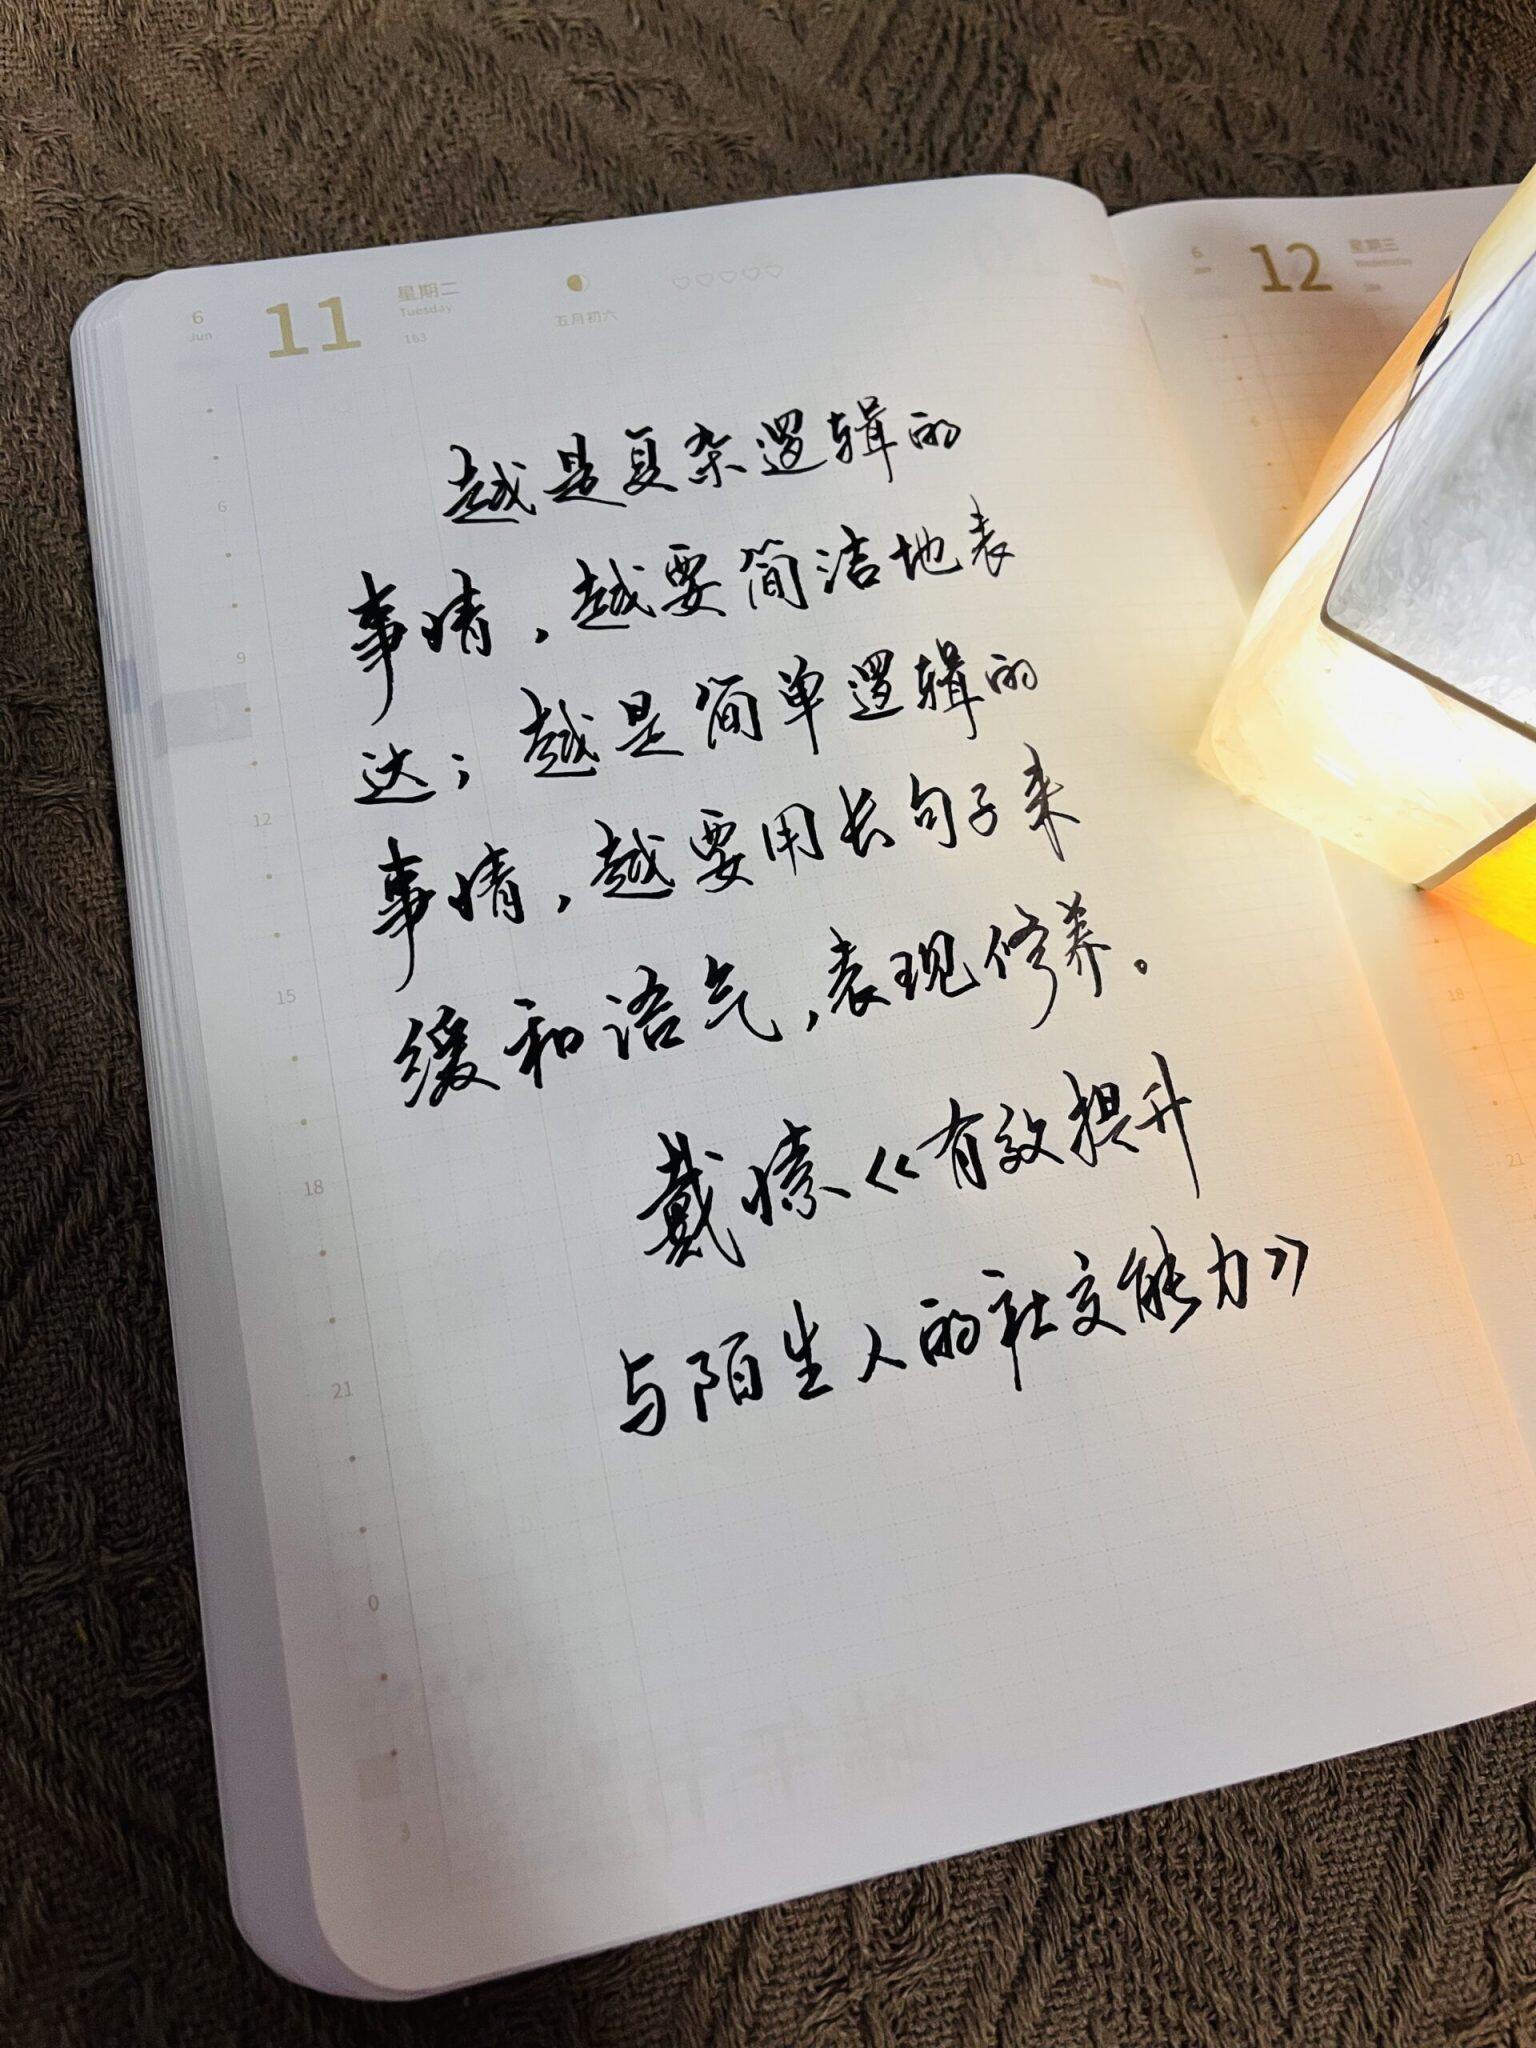 6
Jun
11
星期二
Tuesday
163
五月初六
6
12
星期三
越是复杂逻辑的
事情，越要简洁地表
达；越是简单逻辑的
事情，越要用长句子来
缓和语气，表现修养。
戴愫《有效提升
与陌生人的社交能力》
6
9
12
15
18
21
0
3
18
21